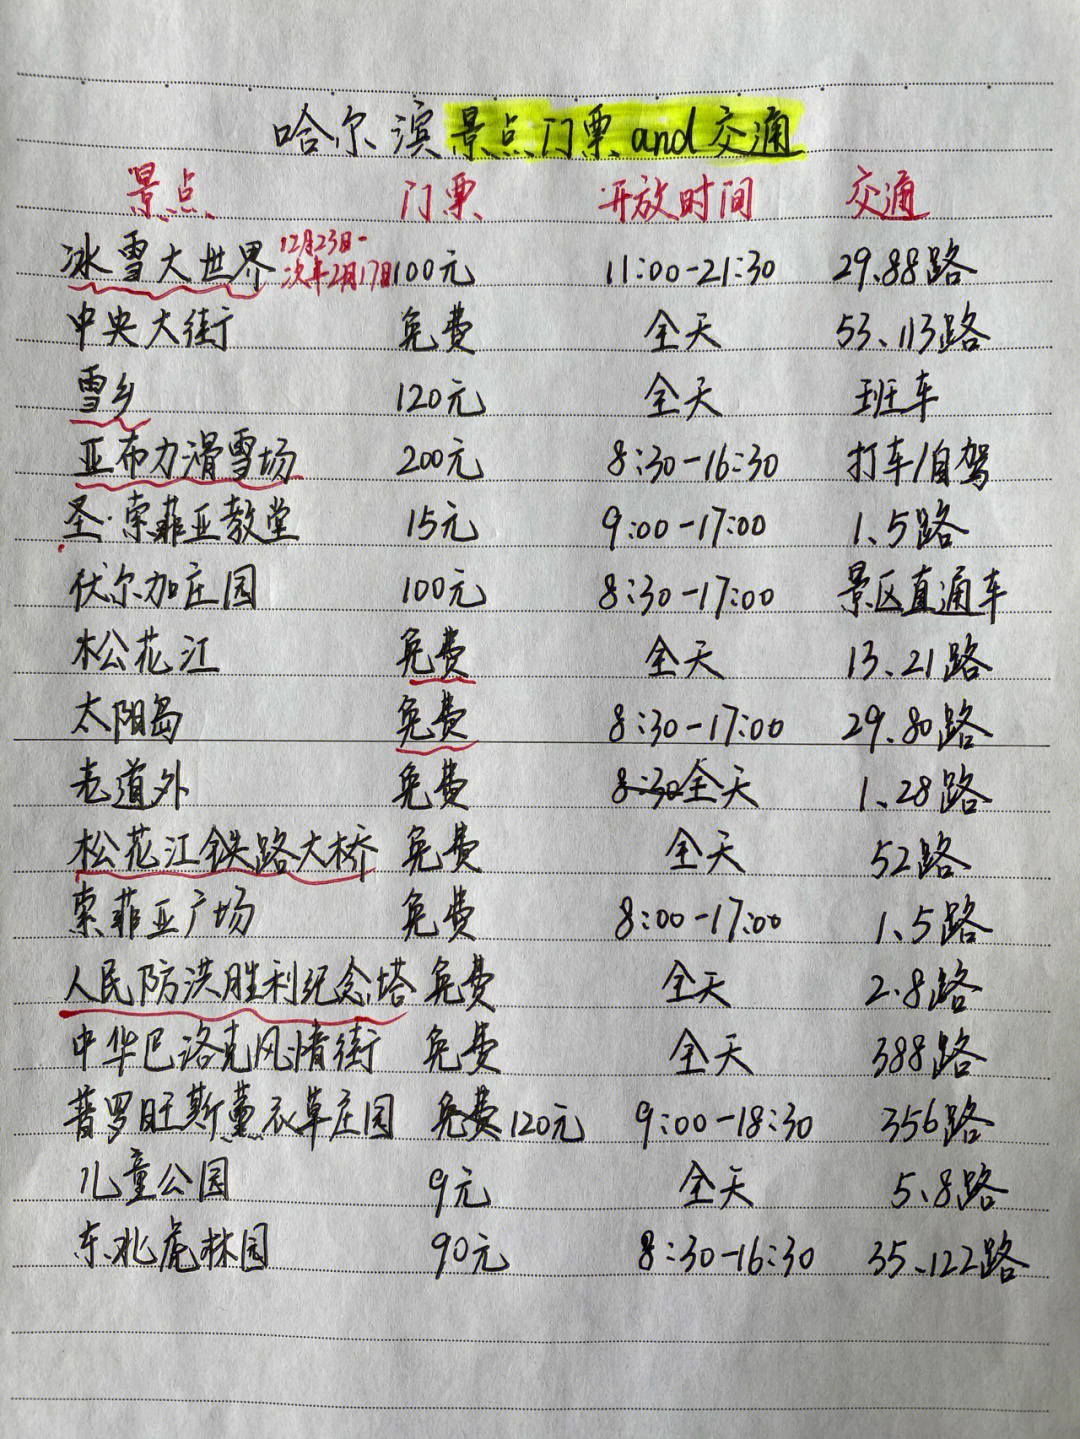 哈尔滨景点门票and交通
景点 门票 开放时间 交通
冰雪大世界 12月23日-次年2月17日 100元 11:00-21:30 29、88路
中央大街 免费 全天 53、113路
雪乡 120元 全天 班车
亚布力滑雪场 200元 8:30-16:30 打车/自驾
圣·索菲亚教堂 15元 9:00-17:00 1、5路
伏尔加庄园 100元 8:30-17:00 景区直通车
松花江 免费 全天 13、21路
太阳岛 免费 8:30-17:00 29、80路
老道外 免费 8:30全天 1、28路
松花江铁路大桥 免费 全天 52路
索菲亚广场 免费 8:00-17:00 1、5路
人民防洪胜利纪念塔 免费 全天 2、8路
中华巴洛克风情街 免费 全天 388路
普罗旺斯薰衣草庄园 免费120元 9:00-18:30 356路
儿童公园 9元 全天 5、8路
东北虎林园 90元 8:30-16:30 35、122路